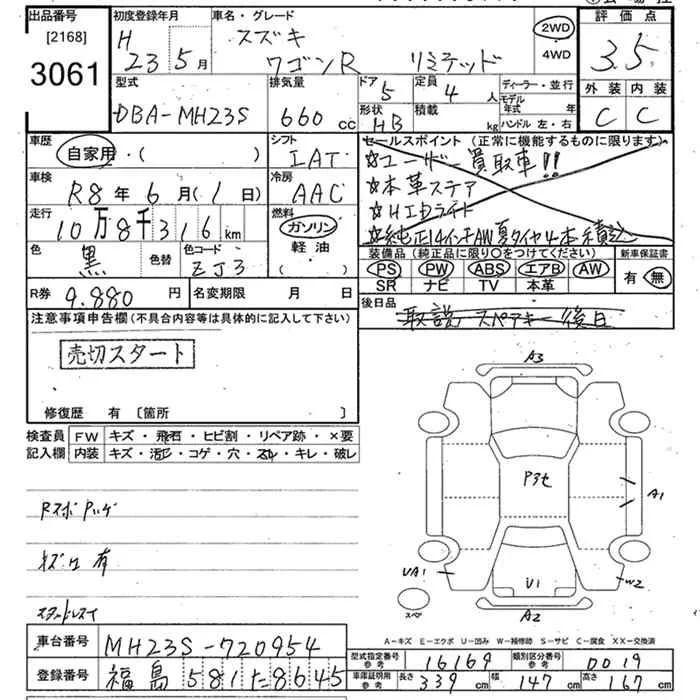 出品番号 初度登録年月 車名・グレード 評価点
[2168] H 23 5月 スズキ 2WD 3.5
3061 ワゴンR リミテッド 4WD
外装 内装
型式 排気量 ドア 定員 ディーラー・並行
DBA-MH23S 660cc 5 4人 モデル年式 年 C C
形状 積載
HB kg ハンドル 左・右
車歴 シフト セールスポイント (正常に機能するものに限ります)
自家用・( ) IAT ☆ユーザー買取車!!
車検 冷房 ☆本革ステア
R8年6月(1日) AAC ☆HIDライト
走行 燃料 ☆純正14インチAW夏タイヤ4本積込
10万8千316km ガソリン
軽油
( )
色 色替 色コード 装備品 (純正品に限り○をつけてください) 新車保証書
黒 ZJ3 PS PW ABS エアB AW 有 無
SR ナビ TV 本革
R券 9.880円 名変期限 月 日 後日品
取説 スペアキー後日
注意事項申告欄(不具合内容等は具体的に記入して下さい)
売切スタート
修復歴 有 〔箇所 〕
検査員 FW キズ・飛石・ヒビ割・リペア跡・×要
記入欄 内装 キズ・汚レ・コゲ・穴・スレ・キレ・破レ
キズ 有
A3
P3
A1
UA1
U1
W2
A2
スペア
A-キズ E-エクボ U-凹み W-補修跡 S-サビ C-腐食 XX-交換済
車台番号 MH23S-720954
登録番号 福島 581 た 8645
型式指定番号 参考 16169 類別区分番号 参考 0019
車庫証明用 参考 長さ 339cm 幅 147cm 高さ 167cm